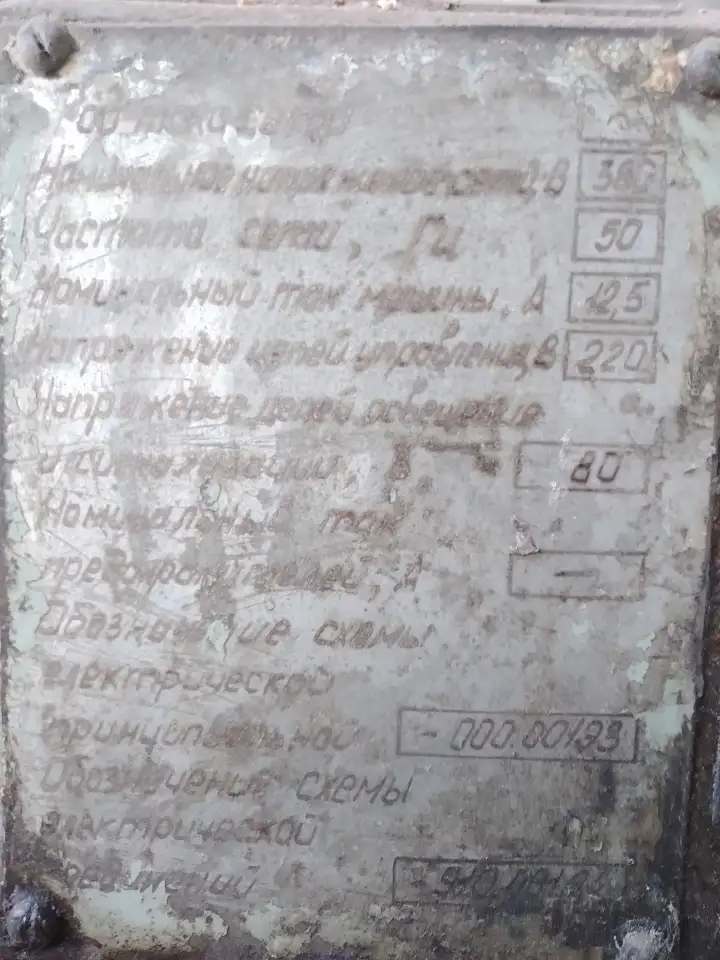 Род тока сети ~
Номинальное напряжение сети, В 380
Частота сети, Гц 50
Номинальный ток машины, А 12,5
Напряжение цепей управления, В 220
Напряжение цепей освещения
и сигнализации, В 80
Номинальный ток
предохранителей, А —
Обозначение схемы
электрической
принципиальной -000.00/Э3
Обозначение схемы
электрической
соединений